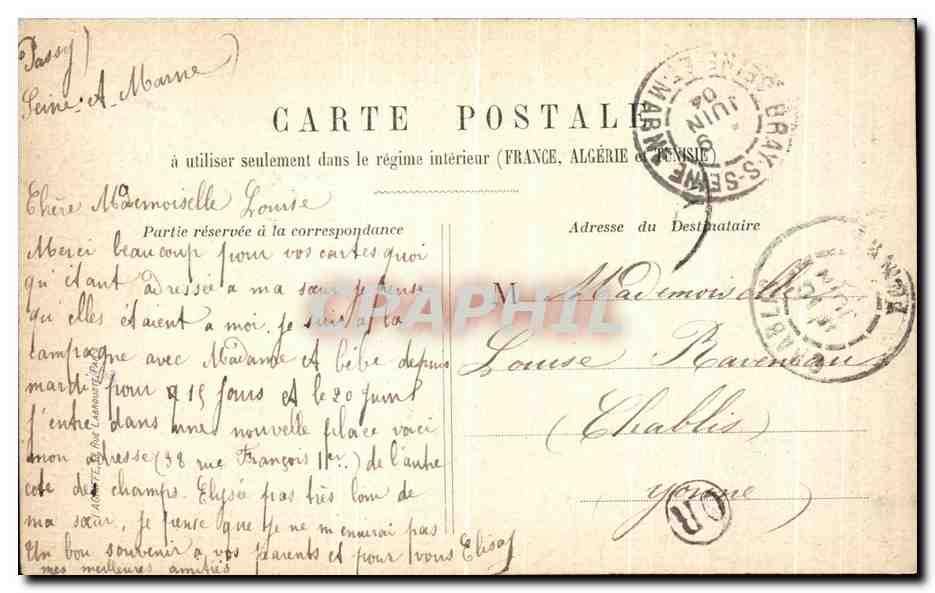 Passy
Seine-A-Marne
CARTE POSTALE
à utiliser seulement dans le régime intérieur (FRANCE, ALGÉRIE et TUNISIE)
Chère Mademoiselle Louise
Partie réservée à la correspondance
Merci beaucoup pour vos cartes quoi
qu'étant adressée a ma sœur je pense
qu'elles étaient a moi, je suis a la
campagne avec Madame et bébé depuis
mardi pour 15 jours et le 20 juin
j'entre dans une nouvelle place voici
mon adresse (38 rue François 1er) de l'autre
coté des champs-Elysée pas très loin de
ma sœur, je pense que je ne m'ennuirai pas
Un bon souvenir a vos parents et pour vous Elisa
mes meilleures amitiés
Adresse du Destinataire
M Mademoiselle
Louise Raveneau
(Chablis)
Yonne
BRAY-S-SEINE
SEINE-ET-MARNE
9
JUIN
04
CHABLIS
OR
CPRAPHIL